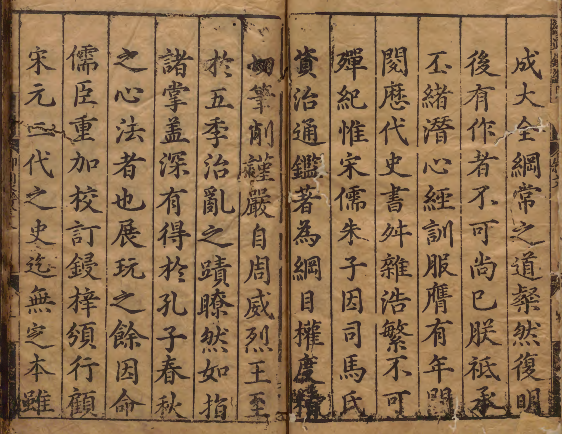 成大全綱常之道粲然復明
後有作者不可尚已朕祗承
丕緒潛心經訓服膺有年間
閱歷代史書舛雜浩繁不可
殫紀惟宋儒朱子因司馬氏
資治通鑑著為綱目權度精
切筆削謹嚴自周威烈王至
於五季治亂之蹟瞭然如指
諸掌蓋深有得於孔子春秋
之心法者也展玩之餘因命
儒臣重加校訂鋟梓頒行顧
宋元二代之史迄無定本雖